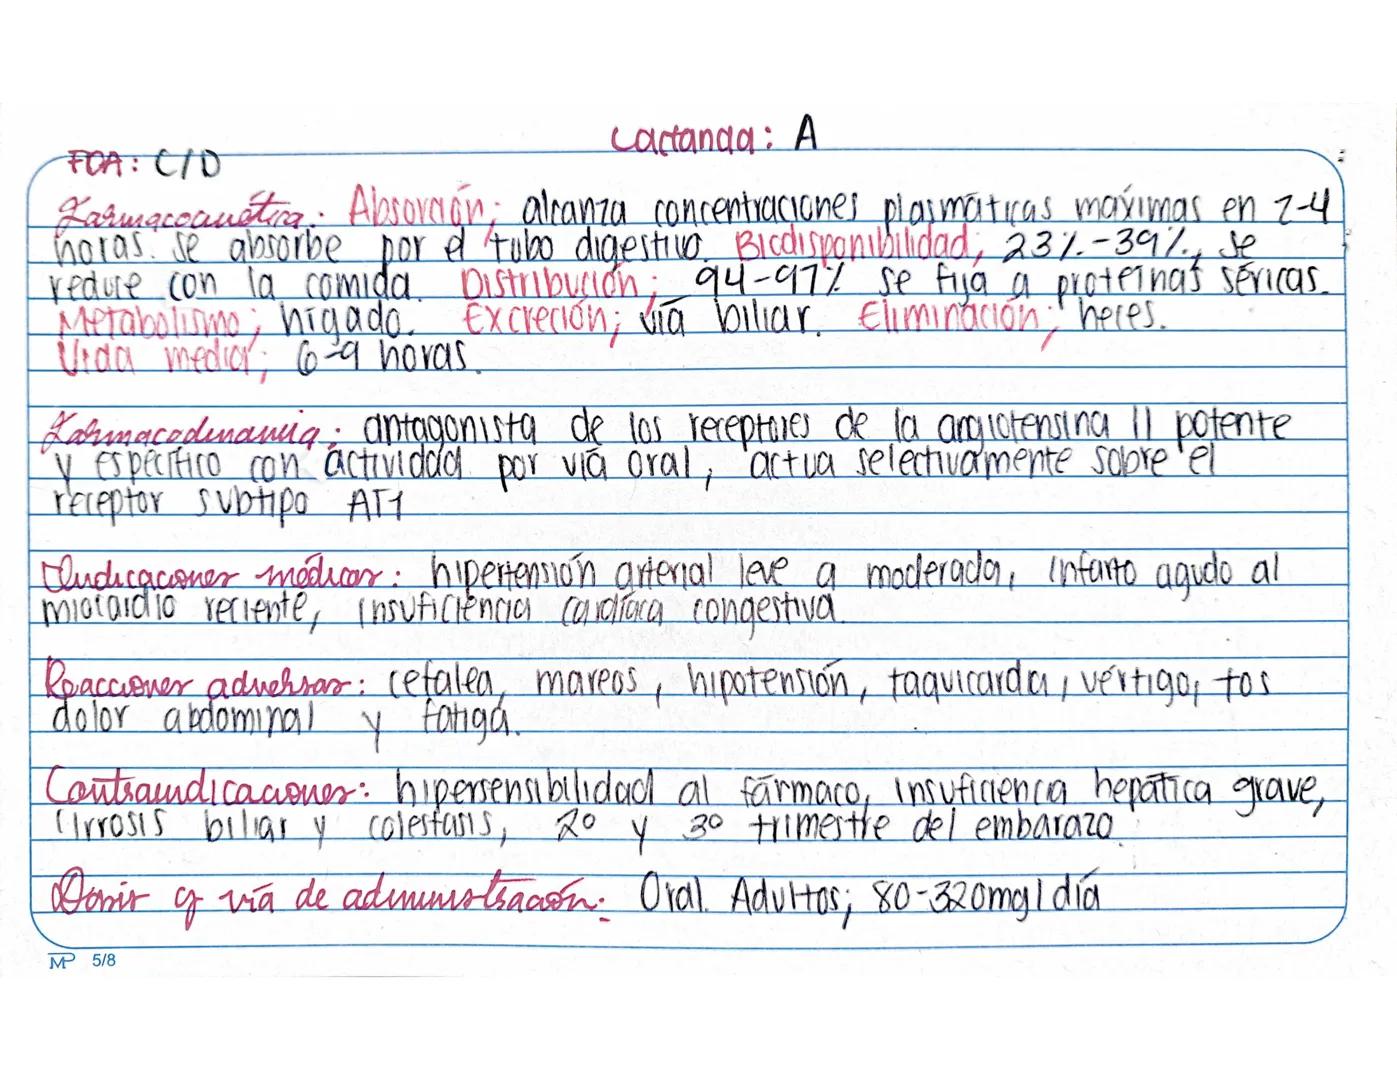 Lactancia: A
FDA: C/D
Farmacocinética: Absorción; alcanza concentraciones plasmáticas maximas en 2-4
horas. se absorbe por el tubo digestivo. Biodisponibilidad; 23%-39%, se
reduce con la comida. Distribución; 94-97% se fija a proteinas séricas.
Metabolismo; higado. Excreción; vía biliar. Eliminación; heces.
Vida media; 6-9 horas.
Farmacodinamia: antagonista de los receptores de la angiotensina II potente
y especifico con actividad por vía oral, actua selectivamente sobre el
receptor subtipo AT1
Indicaciones médicas: hipertensión arterial leve a moderada, infarto agudo al
miocardio reciente, insuficiencia cardíaca congestiva.
Reacciones adversas: cefalea, mareos, hipotensión, taquicardia, vértigo, tos
dolor abdominal y fatiga.
Contraindicaciones: hipersensibilidad al fármaco, insuficiencia hepática grave,
cirrosis biliar y colestasis, 2° y 3° trimestre del embarazo.
Dosis y vía de administración: Oral. Adultos; 80-320mg/día
MP 5/8